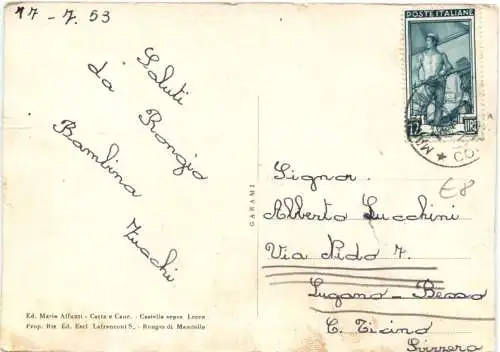 17-7.53
Saluti
da Rongio
Bambina
Zucchi
POSTE ITALIANE
12 LIRE
CO
GARAMI
€8
Signor.
Alberto Lucchini
Via Nido 7.
Lugano - Besso
C. Ticino
Svizzera
Ed. Maria Alfanti - Carta e Canc. - Castello sopra Lecco
Prop. Ris Ed. Escl Lafranconi S., - Rongio di Mandello